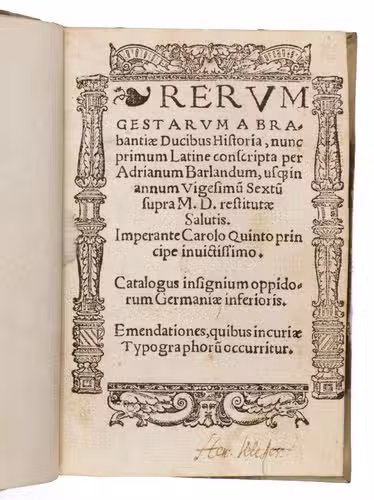 RERVM
GESTARVM A BRA-
bantiæ Ducibus Historia, nunc
primum Latine conscripta per
Adrianum Barlandum, usq; in
annum Vigesimũ Sextũ
supra M. D. restitutæ
Salutis.
Imperante Carolo Quinto prin
cipe inuictissimo.
Catalogus insignium oppido-
rum Germaniæ inferioris.
Emendationes, quibus incuriæ
Typographorũ occurritur.